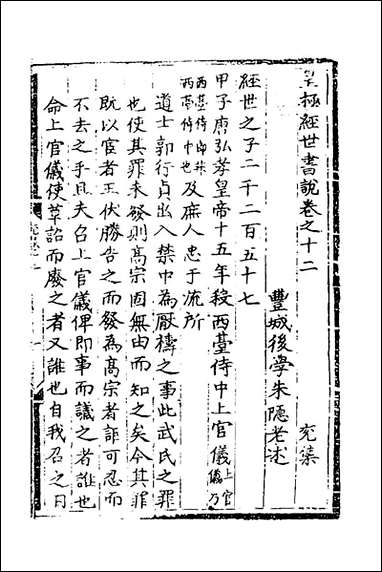 皇極經世書說卷之十二
豐城後學朱隱老述
經世之子二千二百五十七
甲子唐弘孝皇帝十五年殺西臺侍中上官儀上官儀乃
西臺侍郎非西臺侍中也及庶人忠于流所
道士郭行貞出入禁中為厭禱之事此武氏之罪
也使其罪未發則高宗固無由而知之矣今其罪
既以宦者王伏勝告之而發為高宗者詎可忍而
不去之乎且夫召上官儀俾即事而議之者誰也
命上官儀使草詔而廢之者又誰也自我召之曰